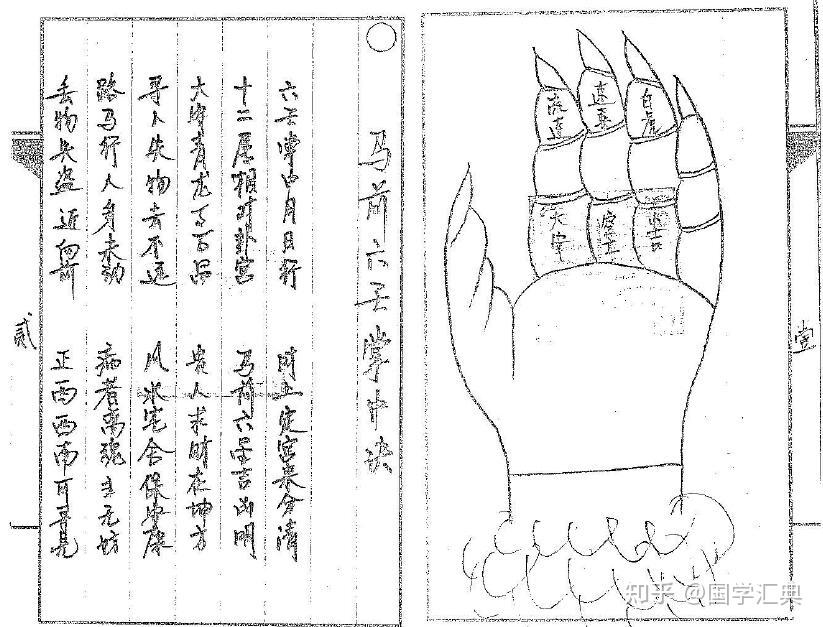 壹
流連
速喜
白虎
大安
空亡
小吉
马前六壬掌中决
六壬掌中月日行 时上定宫来分清
十二属相对卦宫 马前六壬吉凶明
大安青龙 贵人求财在坤方
寻人失物去不远 风水宅舍保安康
路马行人身未动 病者离魂主无妨
丢物失盗近向前 正西西南可寻见
贰
知乎 @国学汇典